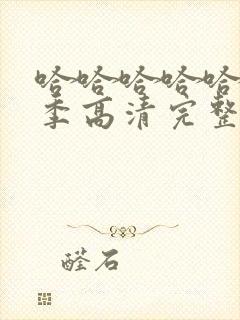 哈哈哈哈哈
季高清完整
醛石